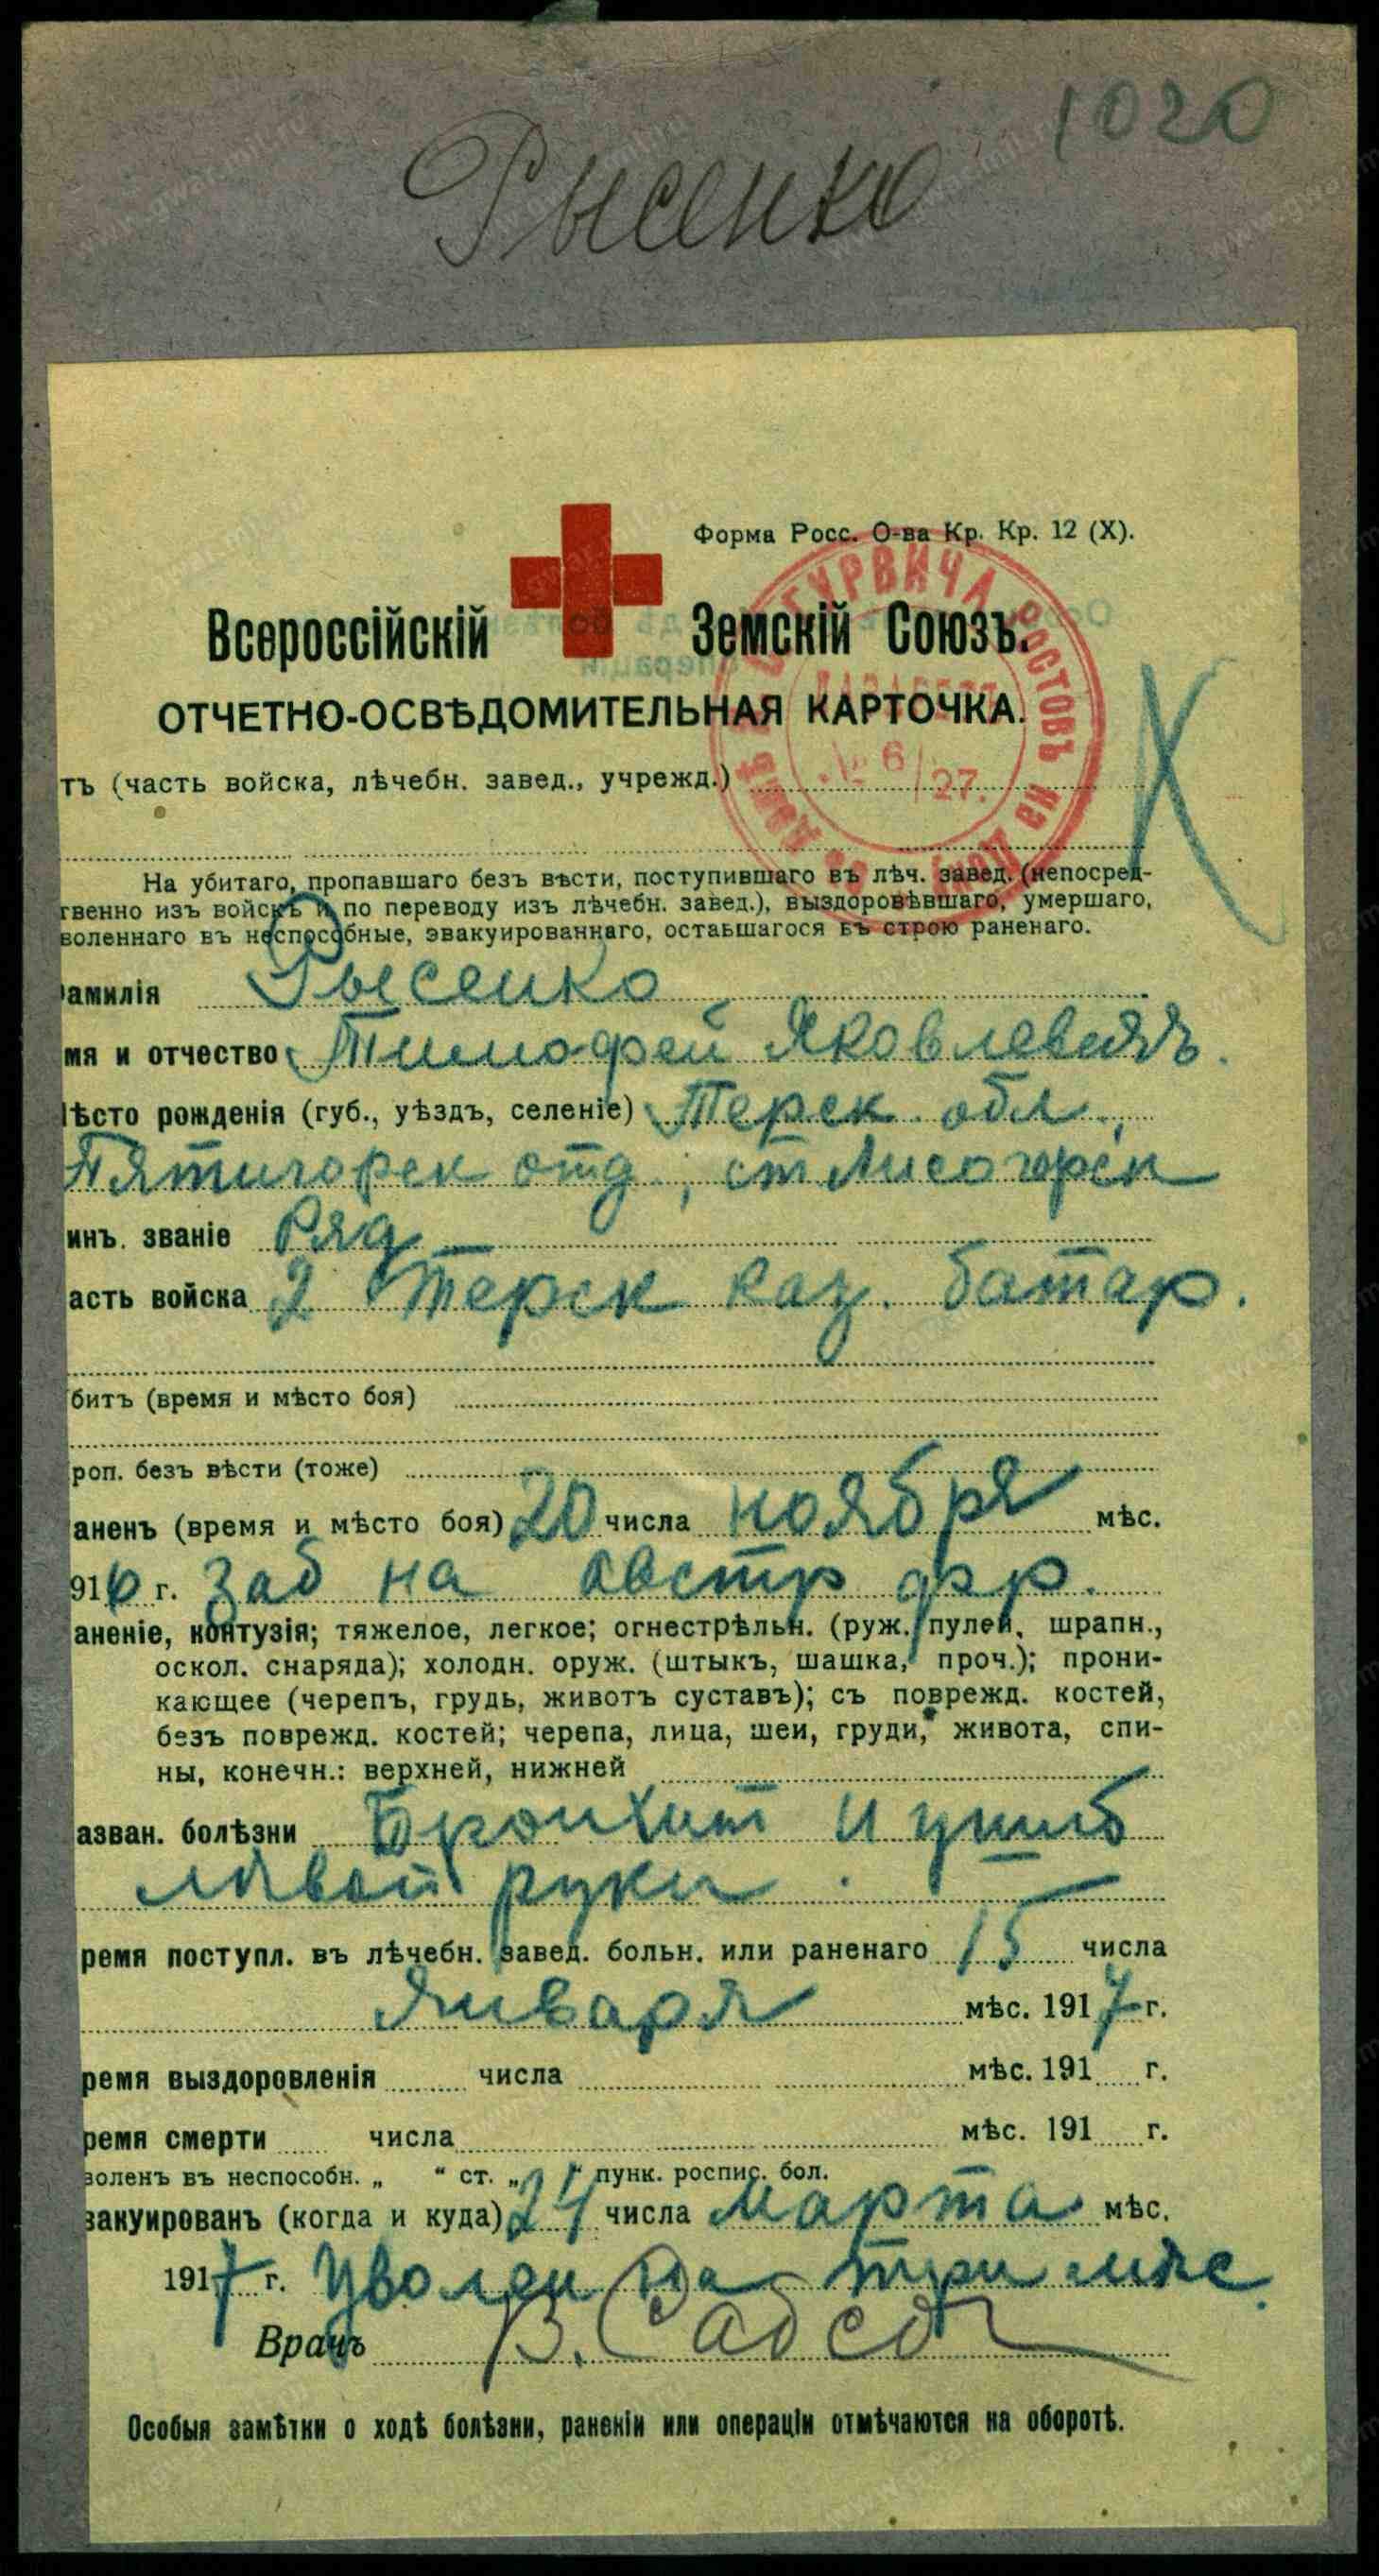 1020
Рысенко
Форма Росс. О-ва Кр. Кр. 12 (X).
Всероссійскій Земскій Союзъ.
ОТЧЕТНО-ОСВѢДОМИТЕЛЬНАЯ КАРТОЧКА.
ГУРВИЧА РОСТОВЪ на
№ 6/27.
тъ (часть войска, лѣчебн. завед., учрежд.)
На убитаго, пропавшаго безъ вѣсти, поступившаго въ лѣч. завед. (непосред-
твенно изъ войскъ и по переводу изъ лѣчебн. завед.), выздоровѣвшаго, умершаго,
воленнаго въ неспособные, эвакуированнаго, оставшагося въ строю раненаго.
амилія Рысенко
мя и отчество Тимофей Яковлевичъ.
ѣсто рожденія (губ., уѣздъ, селеніе) Терск. обл.,
Пятигорск отд., ст Лисогорск
инъ. званіе Ряд
асть войска 2 Терск каз. батар.
битъ (время и мѣсто боя)
роп. безъ вѣсти (тоже)
аненъ (время и мѣсто боя) 20 числа ноября мѣс.
916 г. заб на австр фр.
аненіе, контузія; тяжелое, легкое; огнестрѣльн. (руж. пулей, шрапн.,
оскол. снаряда); холодн. оруж. (штыкъ, шашка, проч.); прони-
кающее (черепъ, грудь, животъ суставъ); съ поврежд. костей,
безъ поврежд. костей; черепа, лица, шеи, груди, живота, спи-
ны, конечн.: верхней, нижней
азван. болѣзни Бронхит и ушиб
лѣвой руки.
ремя поступл. въ лѣчебн. завед. больн. или раненаго 15 числа
Января мѣс. 1917 г.
ремя выздоровленія числа мѣс. 191 г.
ремя смерти числа мѣс. 191 г.
воленъ въ неспособн. „ “ ст. „ “ пунк. роспис. бол.
вакуированъ (когда и куда) 24 числа Марта мѣс.
1917 г. Уволен на три мѣс.
Врачъ В.
Особыя замѣтки о ходѣ болѣзни, раненіи или операціи отмѣчаются на оборотѣ.